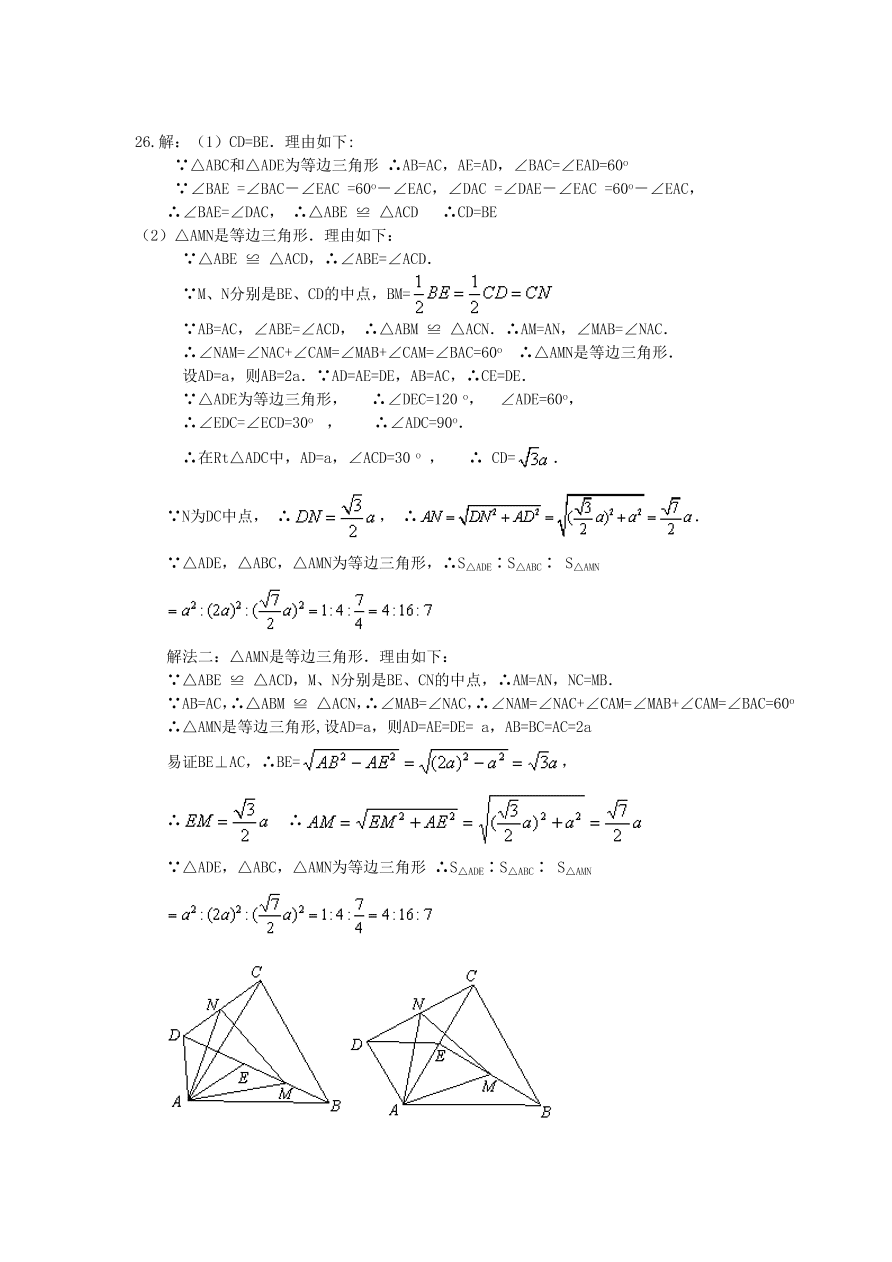 26.解：（1）CD=BE．理由如下:
∵△ABC和△ADE为等边三角形 ∴AB=AC，AE=AD，∠BAC=∠EAD=60º
∵∠BAE =∠BAC－∠EAC =60º－∠EAC，∠DAC =∠DAE－∠EAC =60º－∠EAC，
∴∠BAE=∠DAC， ∴△ABE ≌ △ACD ∴CD=BE
（2）△AMN是等边三角形．理由如下：
∵△ABE ≌ △ACD，∴∠ABE=∠ACD．
∵M、N分别是BE、CD的中点，BM=1/2 BE = 1/2 CD = CN
∵AB=AC，∠ABE=∠ACD， ∴△ABM ≌ △ACN．∴AM=AN，∠MAB=∠NAC．
∴∠NAM=∠NAC+∠CAM=∠MAB+∠CAM=∠BAC=60º ∴△AMN是等边三角形．
设AD=a，则AB=2a．∵AD=AE=DE，AB=AC，∴CE=DE．
∵△ADE为等边三角形， ∴∠DEC=120 º， ∠ADE=60º，
∴∠EDC=∠ECD=30º ， ∴∠ADC=90º．
∴在Rt△ADC中，AD=a，∠ACD=30 º ， ∴ CD=√3a ．
∵N为DC中点， ∴DN = √3/2 a ， ∴AN = √(DN² + AD²) = √((√3/2 a)² + a²) = √7/2 a．
∵△ADE，△ABC，△AMN为等边三角形，∴S△ADE∶S△ABC∶ S△AMN
= a² : (2a)² : (√7/2 a)² = 1 : 4 : 7/4 = 4 : 16 : 7
解法二：△AMN是等边三角形．理由如下：
∵△ABE ≌ △ACD，M、N分别是BE、CN的中点，∴AM=AN，NC=MB．
∵AB=AC，∴△ABM ≌ △ACN，∴∠MAB=∠NAC，∴∠NAM=∠NAC+∠CAM=∠MAB+∠CAM=∠BAC=60º
∴△AMN是等边三角形,设AD=a，则AD=AE=DE= a，AB=BC=AC=2a
易证BE⊥AC，∴BE=√(AB² − AE²) = √((2a)² − a²) = √3a，
∴EM = √3/2 a ∴AM = √(EM² + AE²) = √((√3/2 a)² + a²) = √7/2 a
∵△ADE，△ABC，△AMN为等边三角形 ∴S△ADE∶S△ABC∶ S△AMN
= a² : (2a)² : (√7/2 a)² = 1 : 4 : 7/4 = 4 : 16 : 7
C
N
D
E
M
A
B
C
N
D
E
M
A
B